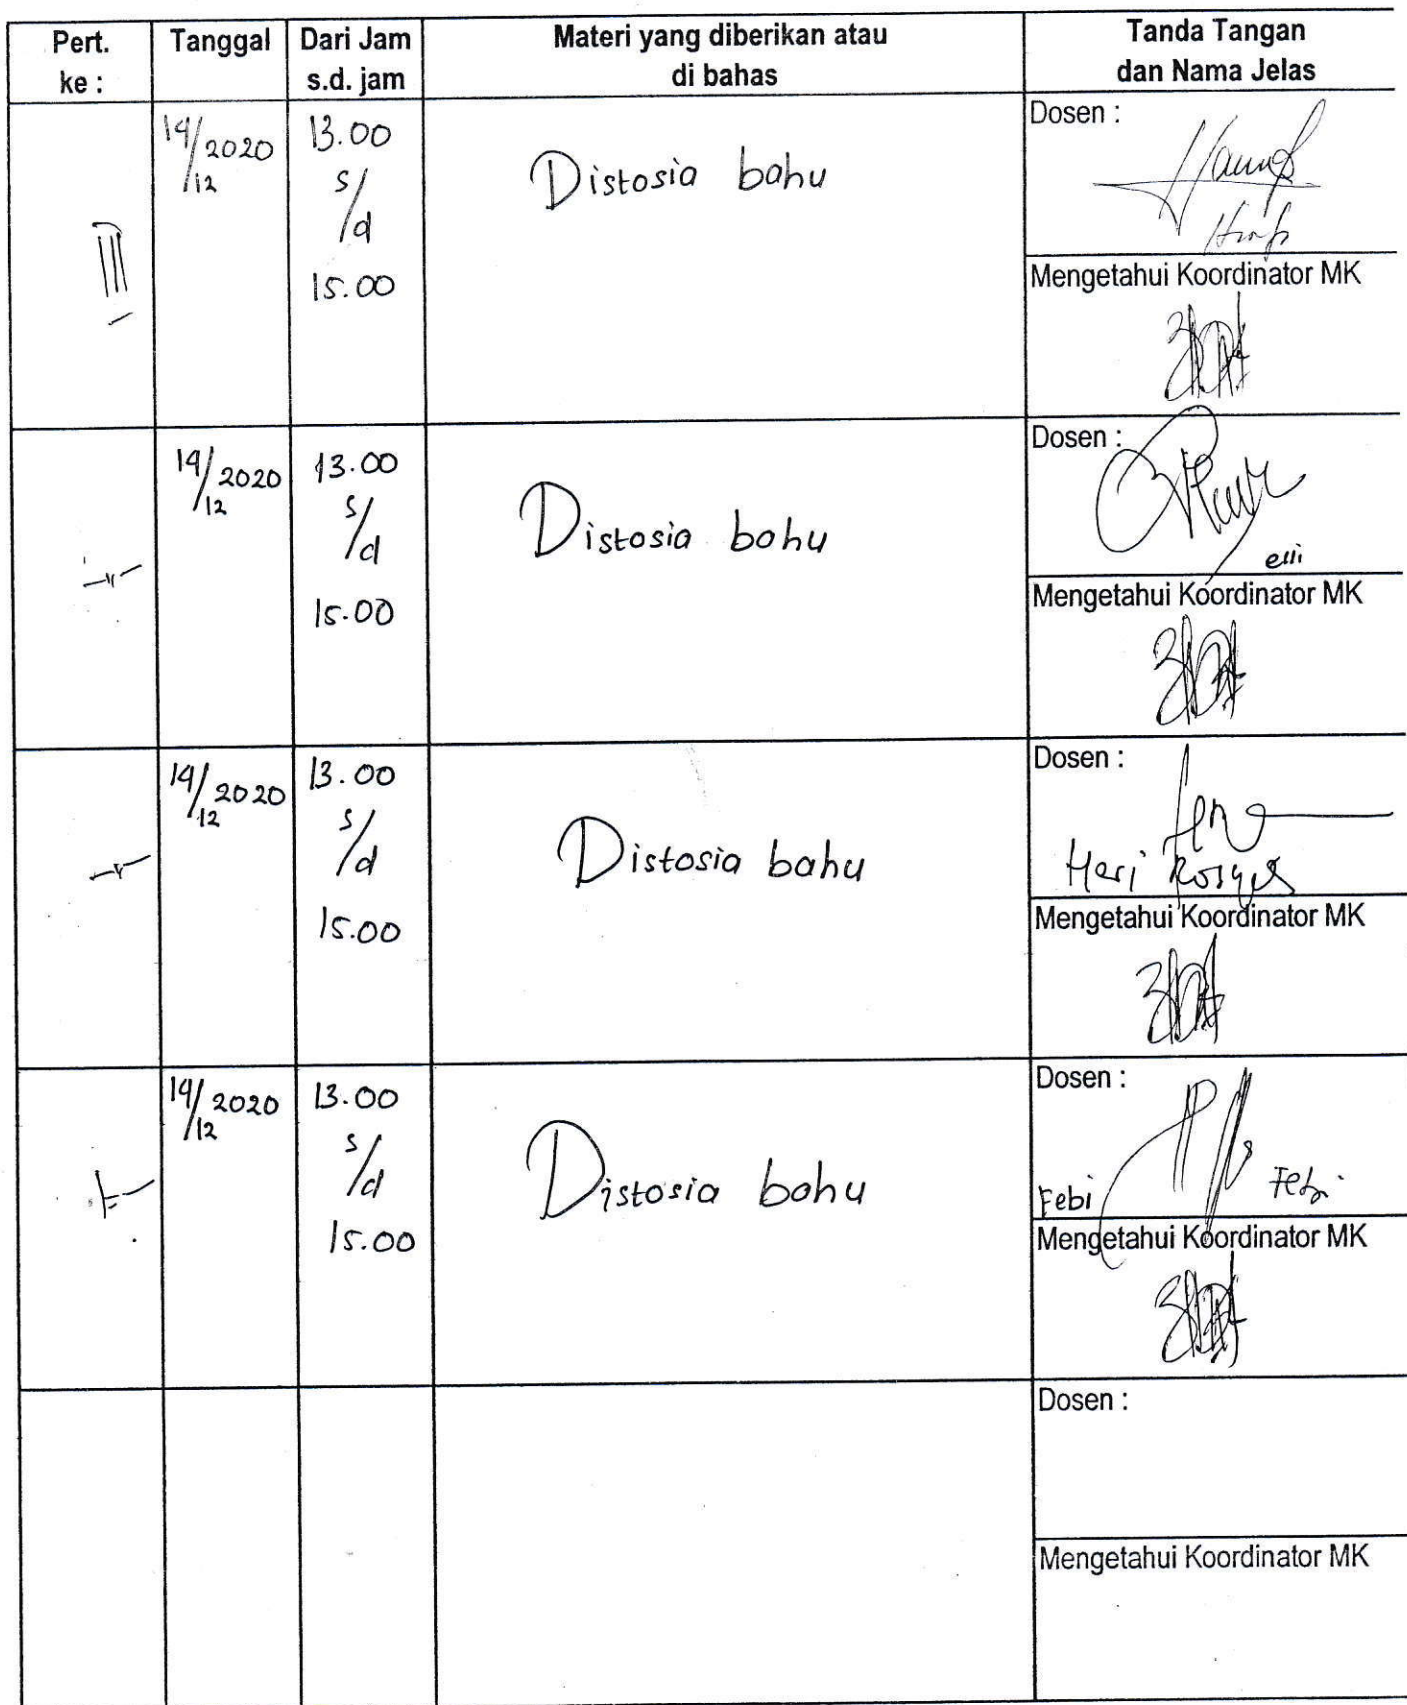 Pert. ke :
Tanggal
Dari Jam s.d. jam
Materi yang diberikan atau di bahas
Tanda Tangan dan Nama Jelas
III
14/12 2020
13.00
s/d
15.00
Distosia bahu
Dosen :
Mengetahui Koordinator MK
14/12 2020
13.00
s/d
15.00
Distosia bahu
Dosen :
Mengetahui Koordinator MK
14/12 2020
13.00
s/d
15.00
Distosia bahu
Dosen :
Heri
Mengetahui Koordinator MK
14/12 2020
13.00
s/d
15.00
Distosia bahu
Dosen :
Febi
Febi
Mengetahui Koordinator MK
Dosen :
Mengetahui Koordinator MK